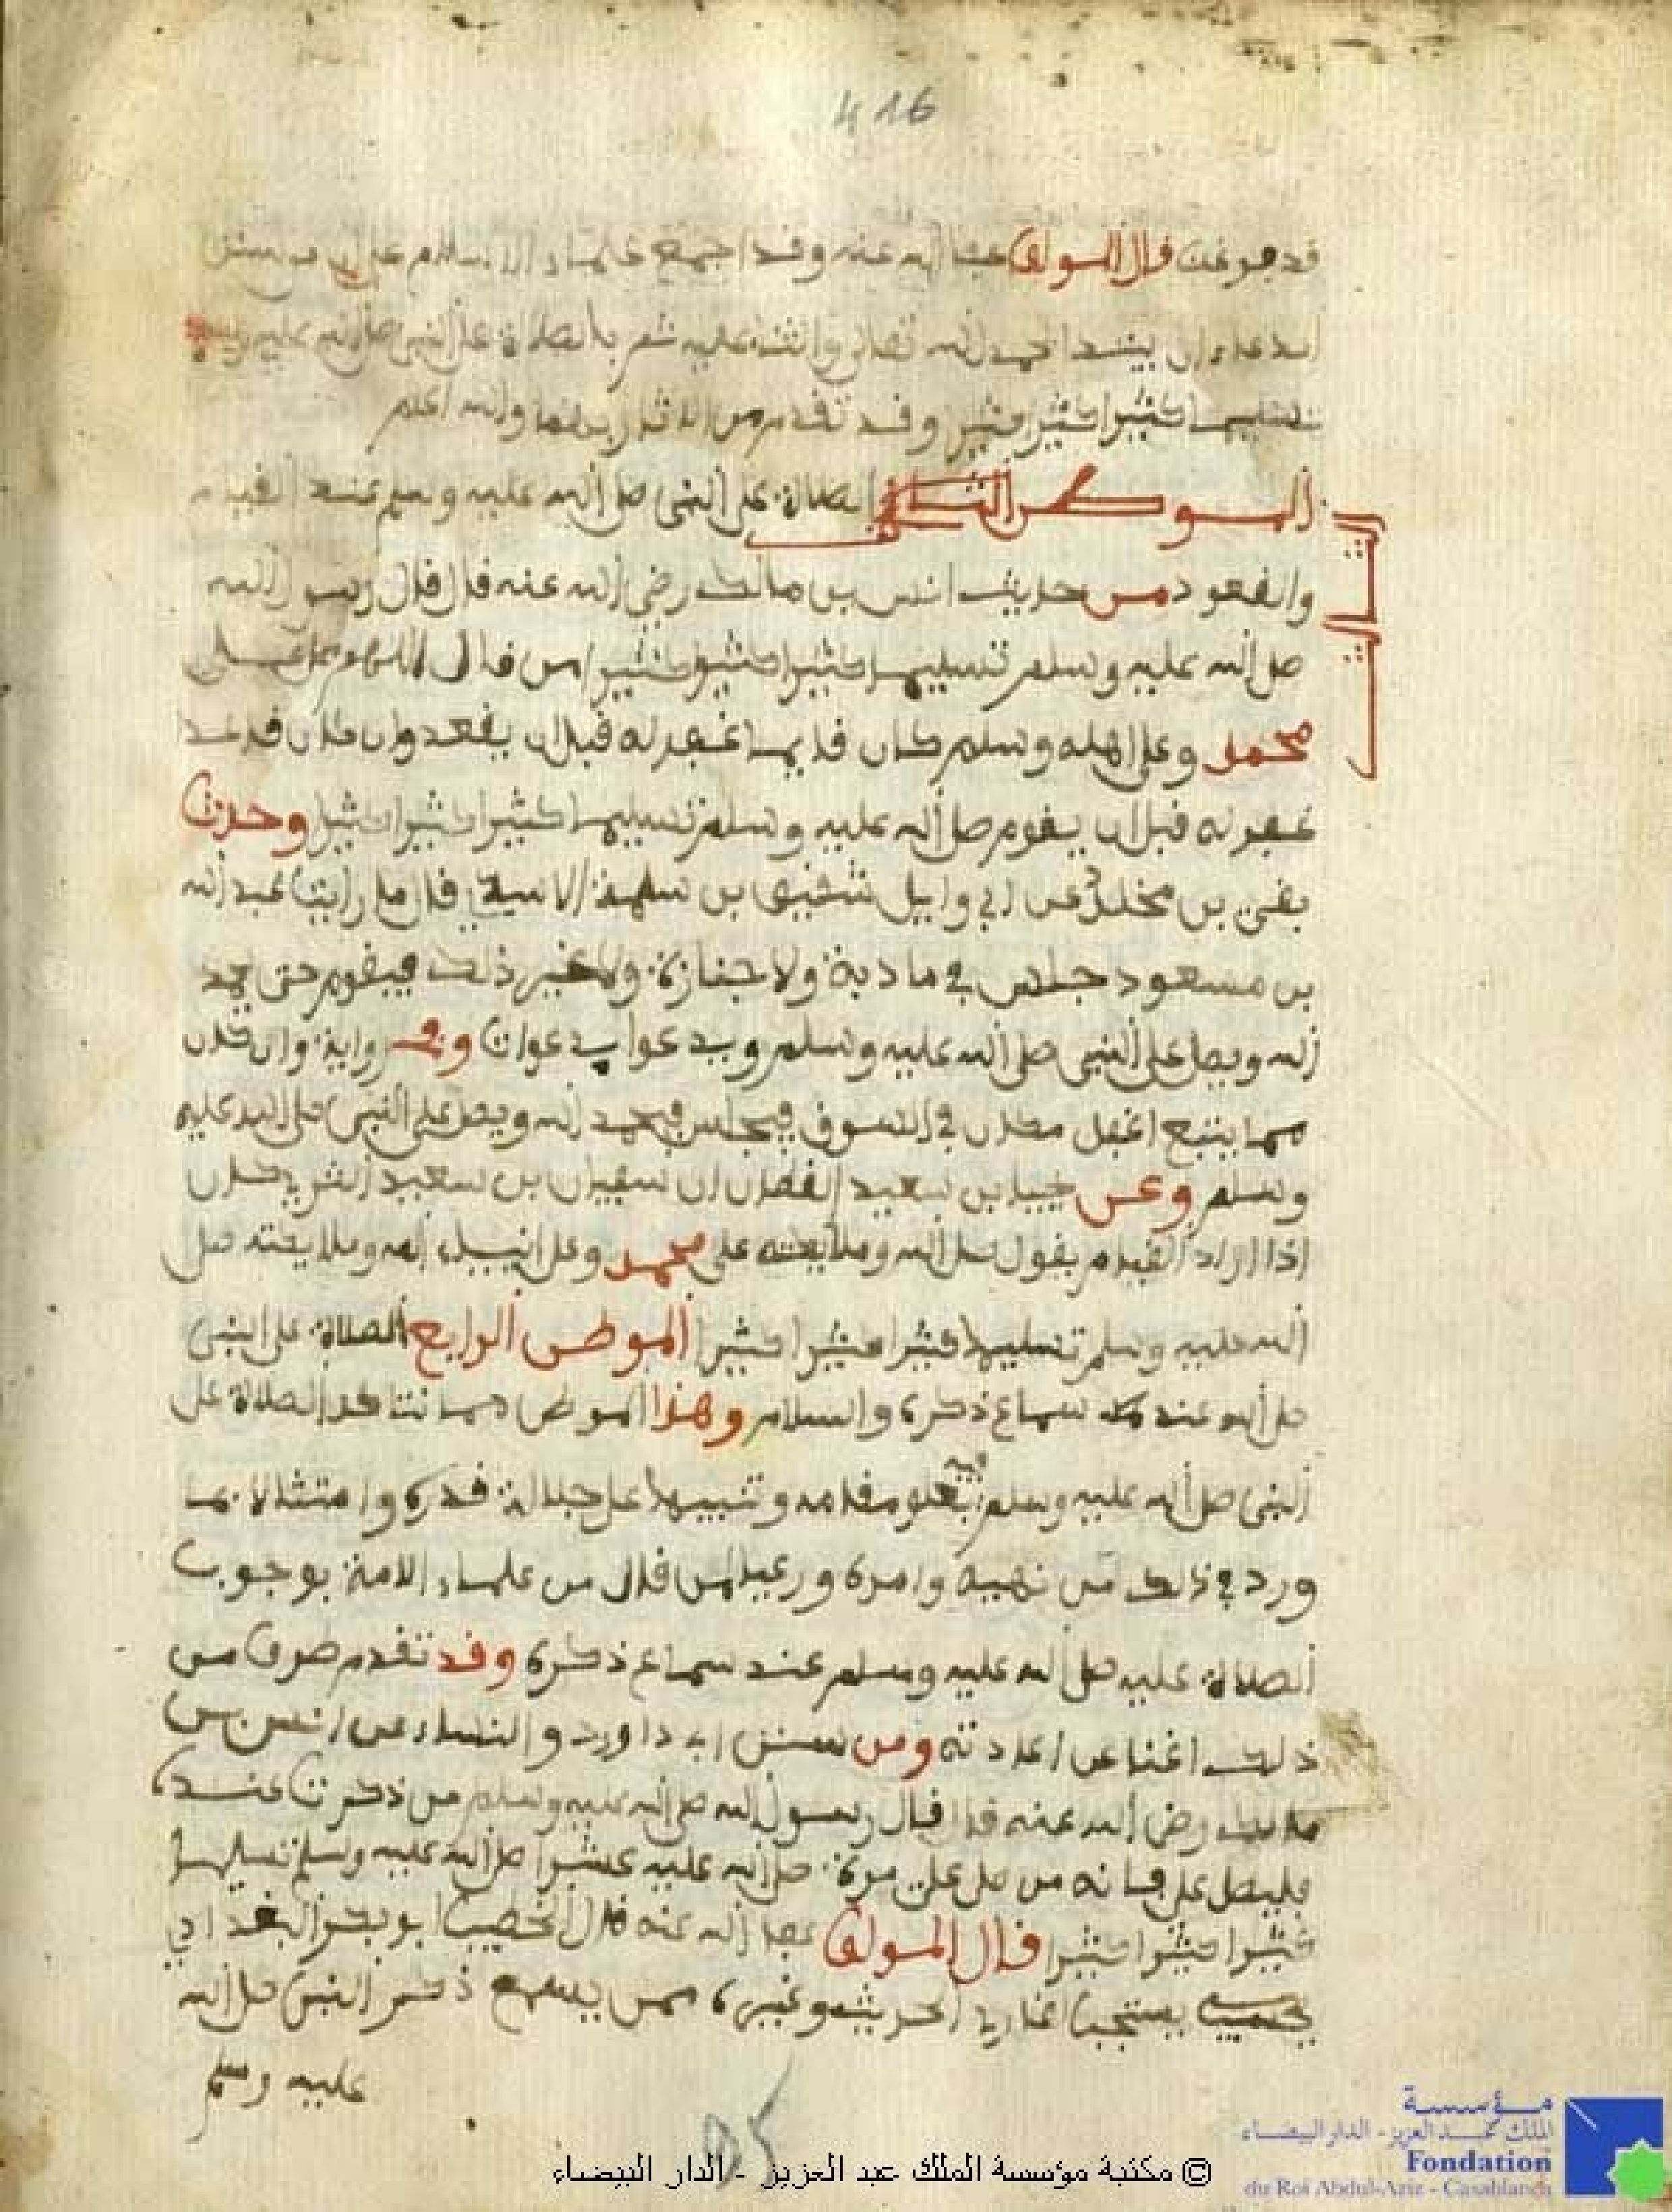 416
قال المولف عفا الله عنه وقد اجمع علماء الاسلام على ان من سنن
الدعاء ان يبتدا بحمد الله تعالى والثناء عليه ثم بالصلاة على النبي صلى الله عليه وسلم
تسليما كثيرا كثيرا كثيرا وقد تقدم من الاثار والله اعلم
الموطن الثالث الصلاة على النبي صلى الله عليه وسلم عند القيام
والقعود من حديث انس بن مالك رضي الله عنه قال قال رسول الله
صلى الله عليه وسلم تسليما كثيرا كثيرا كثيرا من قال اللهم صل على
محمد وعلى اهله وسلم كان قايما غفر له قبل ان يقعد وان كان قاعدا
غفر له قبل ان يقوم صلى الله عليه وسلم تسليما كثيرا كثيرا كثيرا وحدث
بقي بن مخلد عن ابي وايل شقيق بن سلمة الاسدي قال ما رايت عبد الله
بن مسعود جلس في مادبة ولا جنازة ولا غير ذلك فيقوم حتى يحمد
الله ويصل على النبي صلى الله عليه وسلم ويدعوا بدعوات وفي رواية وان كان
مما يتبع اغفل مكان في السوق فيجلس فيحمد الله ويصل على النبي صلى الله عليه
وسلم وعن يحيى بن سعيد القطان ان سفيان بن سعيد الثوري كان
اذا اراد القيام يقول صلى الله وملايكته على محمد وعلى انبياء الله وملايكته صلى
الله عليه وسلم تسليما كثيرا كثيرا كثيرا الموطن الرابع الصلاة على النبي
صلى الله عند سماع ذكره والسلام وهذا الموطن مما تتاكد الصلاة على
النبي صلى الله عليه وسلم فيه لعلو مقامه وتنبيها على جلالة قدره وامتثالا بما
ورد في ذلك من نهيه وامره ورعيا لمن قال من علماء الامة بوجوب
الصلاة عليه صلى الله عليه وسلم عند سماع ذكره وقد تقدم طرف من
ذلك اغنا عن اعادته ومن سنن ابي داوود والنساء عن انس بن
مالك رضي الله عنه قال قال رسول الله صلى الله عليه وسلم من ذكرت عنده
فليصل علي فانه من صلى علي مرة صلى الله عليه عشرا صلى الله عليه وسلم تسليما
كثيرا كثيرا كثيرا قال المولف عفا الله عنه قال الخطيب ابو بكر البغدادي
يستحب لقارئ الحديث وغيره ممن يسمع ذكر النبي صلى الله
عليه وسلم
© مكتبة مؤسسة الملك عبد العزيز - الدار البيضاء
مؤسسة
الملك عبد العزيز - الدار البيضاء
Fondation
du Roi Abdul-Aziz - Casablanca